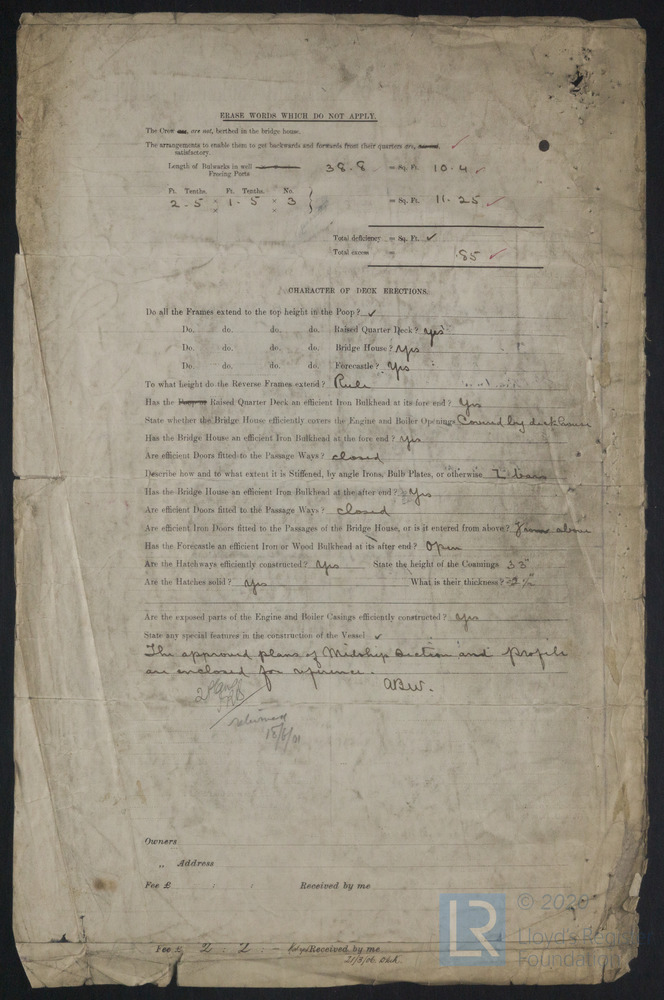 ERASE WORDS WHICH DO NOT APPLY.
The Crew are, are not, berthed in the bridge house.
The arrangements to enable them to get backwards and forwards from their quarters are, satisfactory.
Length of Bulwarks in well 38.8 = Sq. Ft. 10.4
Freeing Ports
Ft. Tenths. Ft. Tenths. No.
2.5 × 1.5 × 3 = Sq. Ft. 11.25
Total deficiency = Sq. Ft. ✓
Total excess = .85
CHARACTER OF DECK ERECTIONS.
Do all the Frames extend to the top height in the Poop? ✓
Do. do. do. do. Raised Quarter Deck? Yes
Do. do. do. do. Bridge House? Yes
Do. do. do. do. Forecastle? Yes
To what height do the Reverse Frames extend? Rule
Has the Poop or Raised Quarter Deck an efficient Iron Bulkhead at its fore end? Yes
State whether the Bridge House efficiently covers the Engine and Boiler Openings Covered by deck house
Has the Bridge House an efficient Iron Bulkhead at the fore end? Yes
Are efficient Doors fitted to the Passage Ways? closed
Describe how and to what extent it is Stiffened, by angle Irons, Bulb Plates, or otherwise bars
Has the Bridge House an efficient Iron Bulkhead at the after end? Yes
Are efficient Doors fitted to the Passage Ways? closed
Are efficient Iron Doors fitted to the Passages of the Bridge House, or is it entered from above? From above
Has the Forecastle an efficient Iron or Wood Bulkhead at its after end? Open
Are the Hatchways efficiently constructed? Yes State the height of the Coamings 33"
Are the Hatches solid? Yes What is their thickness? 2½"
Are the exposed parts of the Engine and Boiler Casings efficiently constructed? Yes
State any special features in the construction of the Vessel ✓
The approved plans of Midship Section and Profile
are enclosed for reference.
ABW.
returned
Owners
„ Address
Fee £ : : Received by me
Fee £ 2 : 2 : — Received by me
21/3/06.
LR © 2020
Lloyd's Register
Foundation